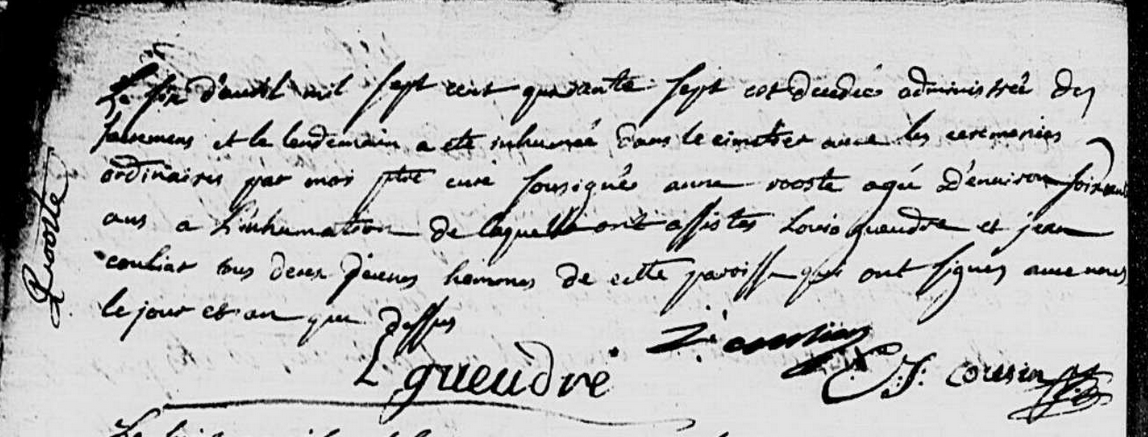 Rooste
Le six d'avril mil sept cent quarante sept est decedée administrée des
sacremens et le lendemain a eté inhumée dans le cimetier avec les ceremonies
ordinaires par moi ptre curé soussigné anne rooste agé d'environ soixante
ans a l'inhumation de laquelle ont assistes Louis gueudre et jean
couliar tous deux jeunes hommes de cette paroisse qui ont signés avec nous
le jour et an que dessus
L gueudre
C. J. cousin